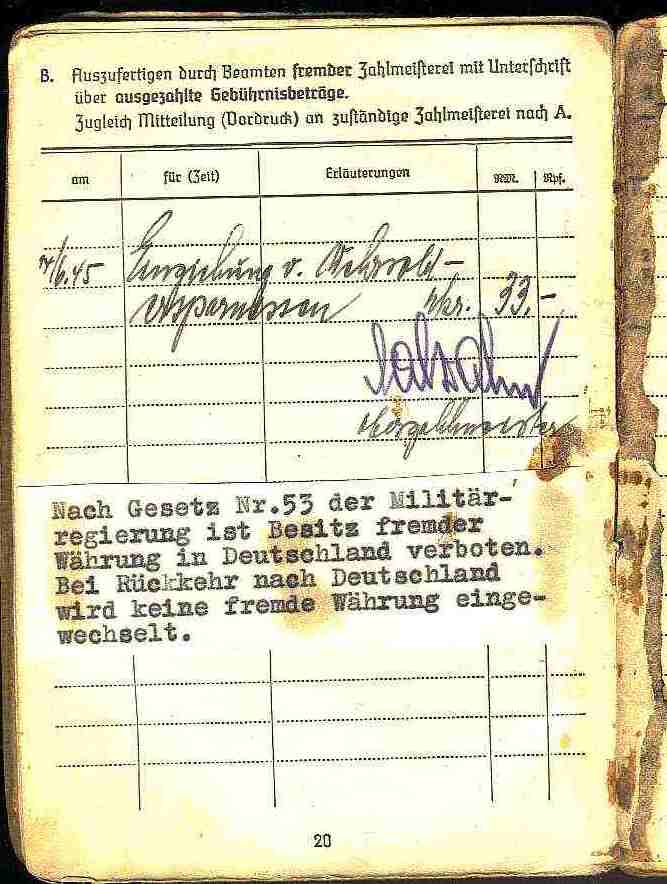 B. Auszufertigen durch Beamten fremder Zahlmeisterei mit Unterschrift
über ausgezahlte Gebührnisbeträge.
Zugleich Mitteilung (Vordruck) an zuständige Zahlmeisterei nach A.
am für (Zeit) Erläuterungen RM. Rpf.
/6.45 Einziehung v. Wehrsold-
ersparnissen nkr. 33,-
Oberzahlmeister
Nach Gesetz Nr.53 der Militär-
regierung ist Besitz fremder
Währung in Deutschland verboten.
Bei Rückkehr nach Deutschland
wird keine fremde Währung einge-
wechselt.
20